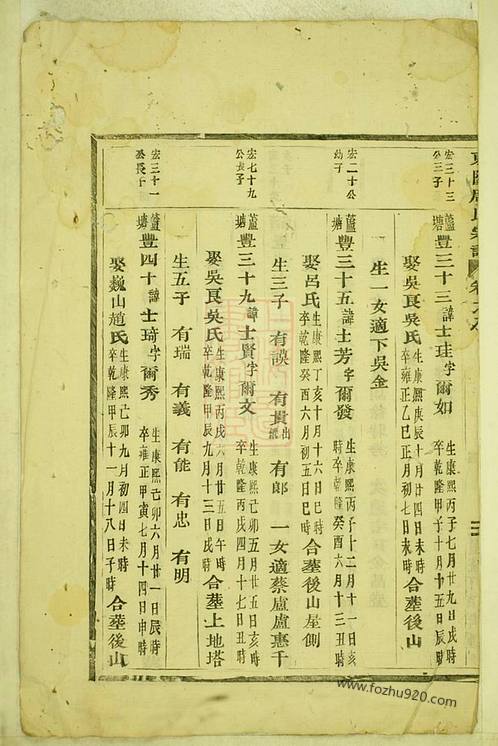 宏三十三
公三子
蘆塘
豐三十三諱士珪字爾如
生康熙丙子七月廿九日戌時
卒乾隆甲子十月十五日辰時
娶吳良吳氏
生康熙庚辰十月廿四日未時
卒雍正乙巳正月初七日未時
合葬後山
生一女適下吳金
宏二十公
幼子
蘆塘
豐三十五諱士芳字爾發
生康熙丙子十二月十一日亥
時卒乾隆癸酉六月十三丑時
娶呂氏
生康熙丁亥十月十六日巳時
卒乾隆癸酉六月初五日巳時
合葬後山屋側
生三子 有謨 有貴出繼 有郎 一女適蔡盧盧惠千
宏七十九
公長子
蘆塘
豐三十九諱士賢字爾文
生康熙己卯五月廿五日亥時
卒乾隆丙戌四月十七日丑時
娶吳良吳氏
生康熙丙戌六月廿五日午時
卒乾隆甲辰九月十三日戌時
合葬上地塔
生五子 有瑞 有義 有能 有忠 有明
宏三十一
公長子
蘆塘
豐四十諱士琦字爾秀
生康熙己卯六月廿一日辰時
卒雍正甲寅七月十四日申時
娶巍山趙氏
生康熙己卯九月初四日未時
卒乾隆甲辰十一月十八日子時
合葬後山
www.fozhu920.com